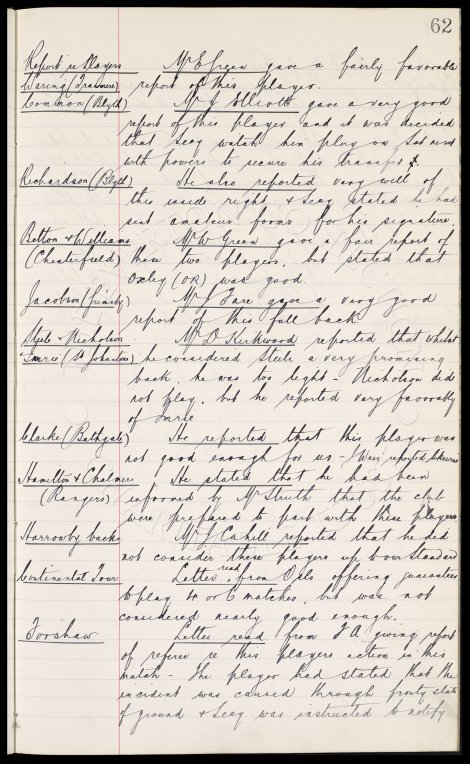 62
Report re Players Mr E Green gave a fairly favorable
Waring (Tranmere) report of this player.
Common (Blyth) Mr J Elliott gave a very good
report of this player and it was decided
that Secy watch him play on Sat next
with powers to secure his transfer.
Richardson (Blyth) He also reported very well of
this inside right & Secy stated he had
sent amateur forms for his signature.
Betton & Williams Mr W Green gave a fair report of
(Chesterfield) these two players, but stated that
Oxley (OR) was good.
Jacobson (Grimsby) Mr J Fare gave a very good
report of this full back.
Steele & Nicholson Mr D Kirkwood reported that whilst
(St Johnstone) he considered Steele a very promising
back, he was too light – Nicholson did
not play, but he reported very favorably
of
Clarke (Bathgate) He reported that this player was
not good enough for us – Weir reported likewise
Hamilton & Chalmers He stated that he had been
(Rangers) informed by Mr Struth that the club
were prepared to part with these players
Harrowby backs Mr J Cahill reported that he did
not consider these players up to our standard
Continental Tour Letter read from Oslo offering guarantees
to play 4 or 6 matches, but was not
considered nearly good enough.
Forshaw. Letter read from F A giving report
of referee re this players action in this
match – The player had stated that the
incident was caused through frosty state
of ground & Secy was instructed to notify